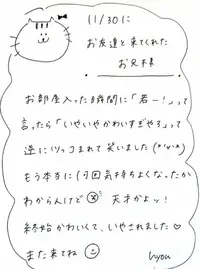 11/30に
お友達と来てくれた
お兄様
お部屋入った瞬間に「若ー!」って
言ったら「いやいやかわいすぎやろ」って
逆にツッコまれて笑いました(*'∀'*)
もう本当に何回気持ちよくなったか
わからんけど 天才かよッ!
終始かわいくて、いやされました♡
また来てね